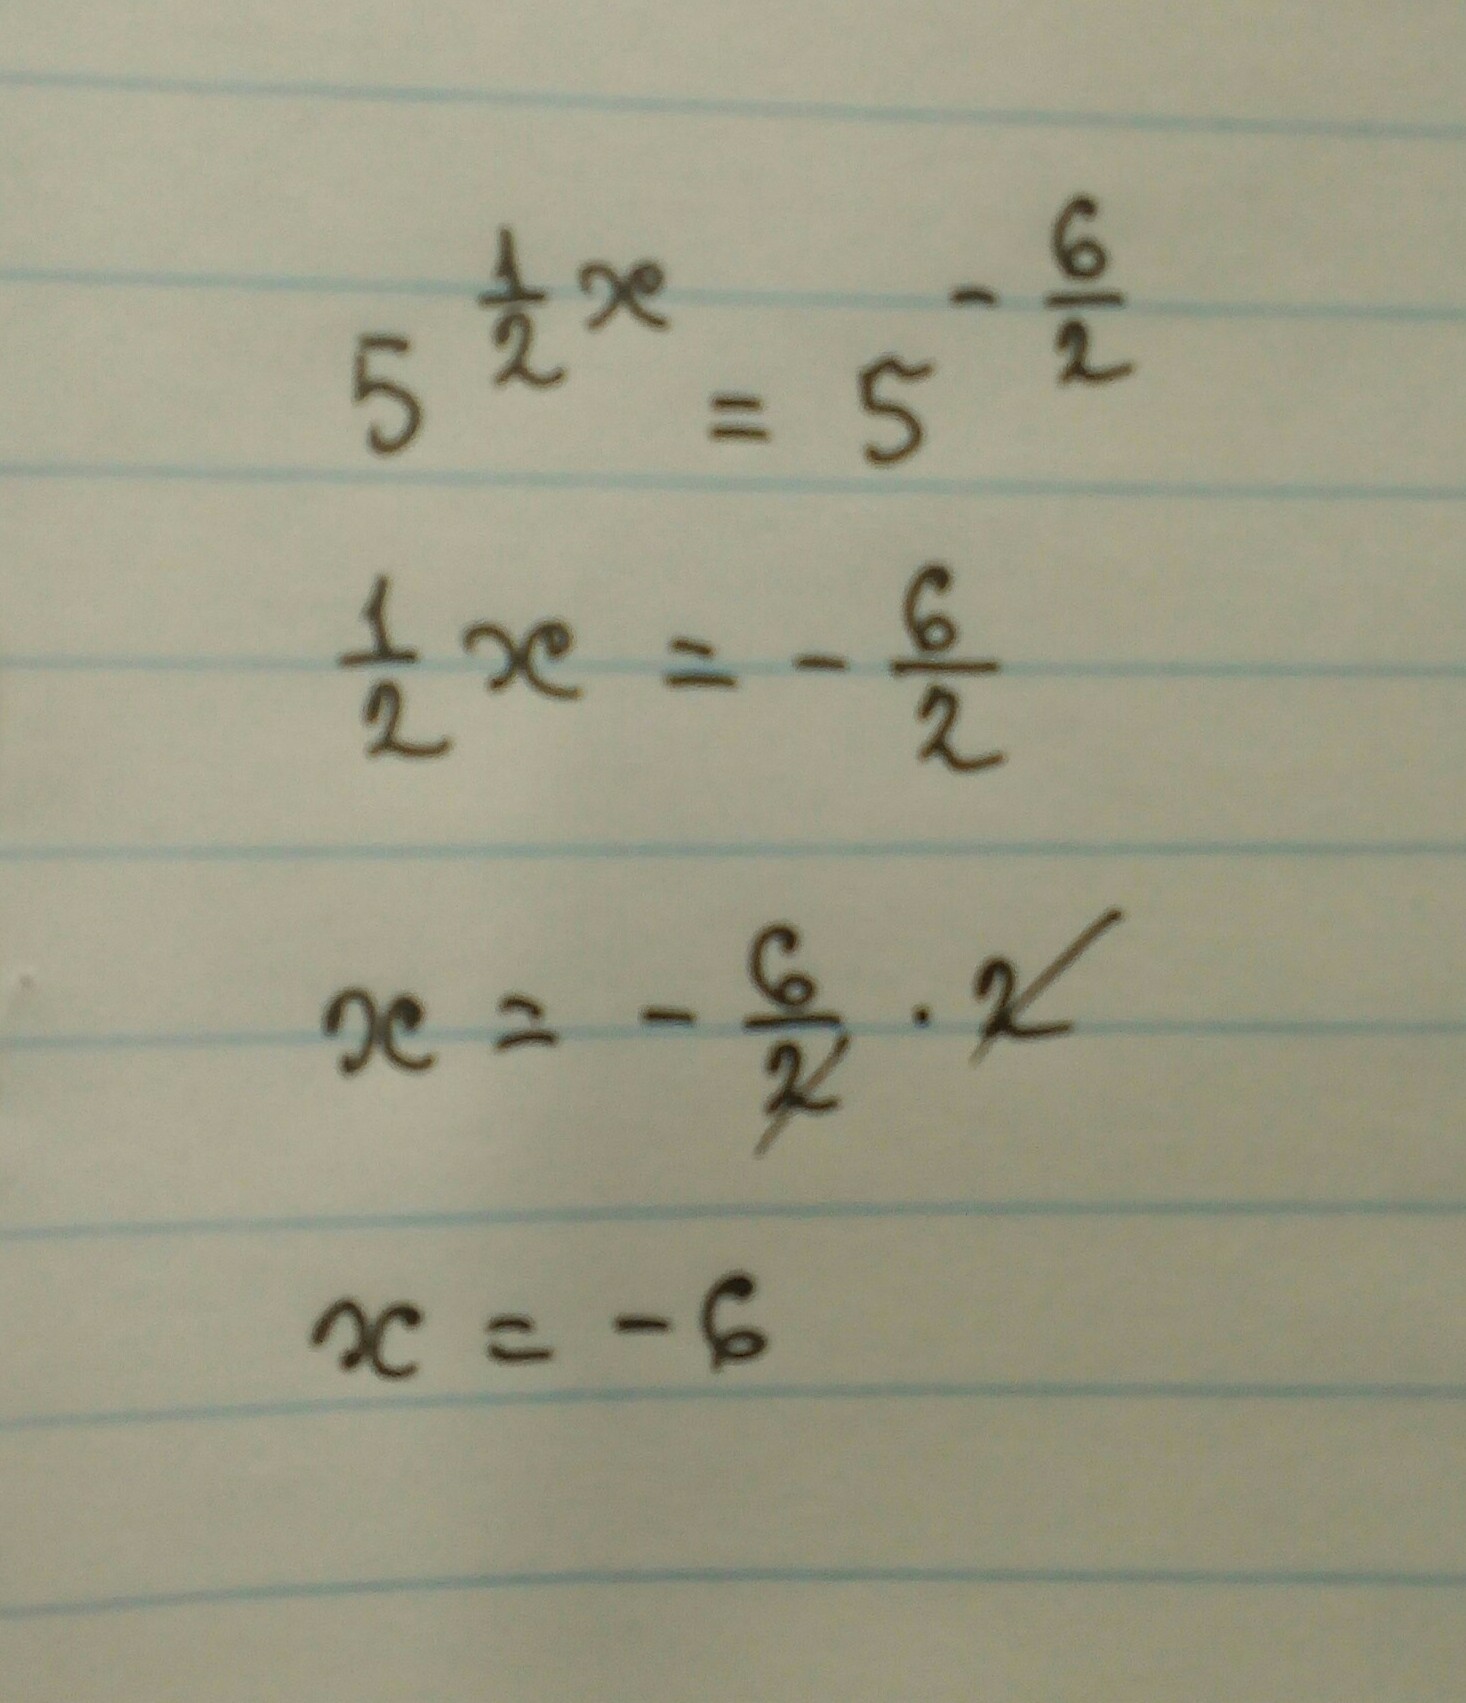 5^{\frac{1}{2}x} = 5^{-\frac{6}{2}}
\frac{1}{2}x = -\frac{6}{2}
x = -\frac{6}{\cancel{2}} \cdot \cancel{2}
x = -6